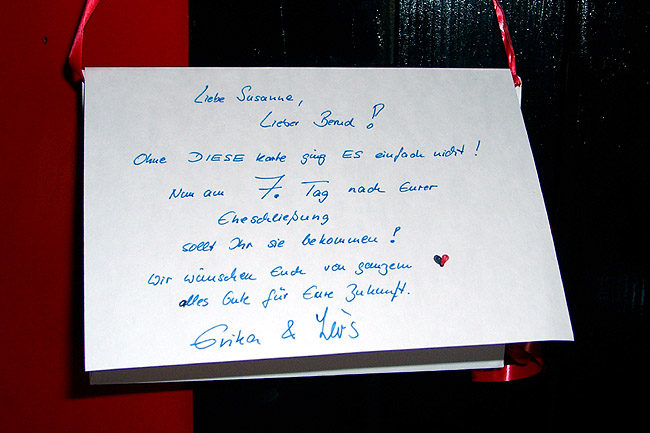 Liebe Susanne,
Lieber Bernd!
Ohne DIESE Karte ging ES einfach nicht!
Nun am 7. Tag nach Eurer
Eheschließung
sollt Ihr sie bekommen!
Wir wünschen Euch von ganzem
alles Gute für Eure Zukunft.
Erika &